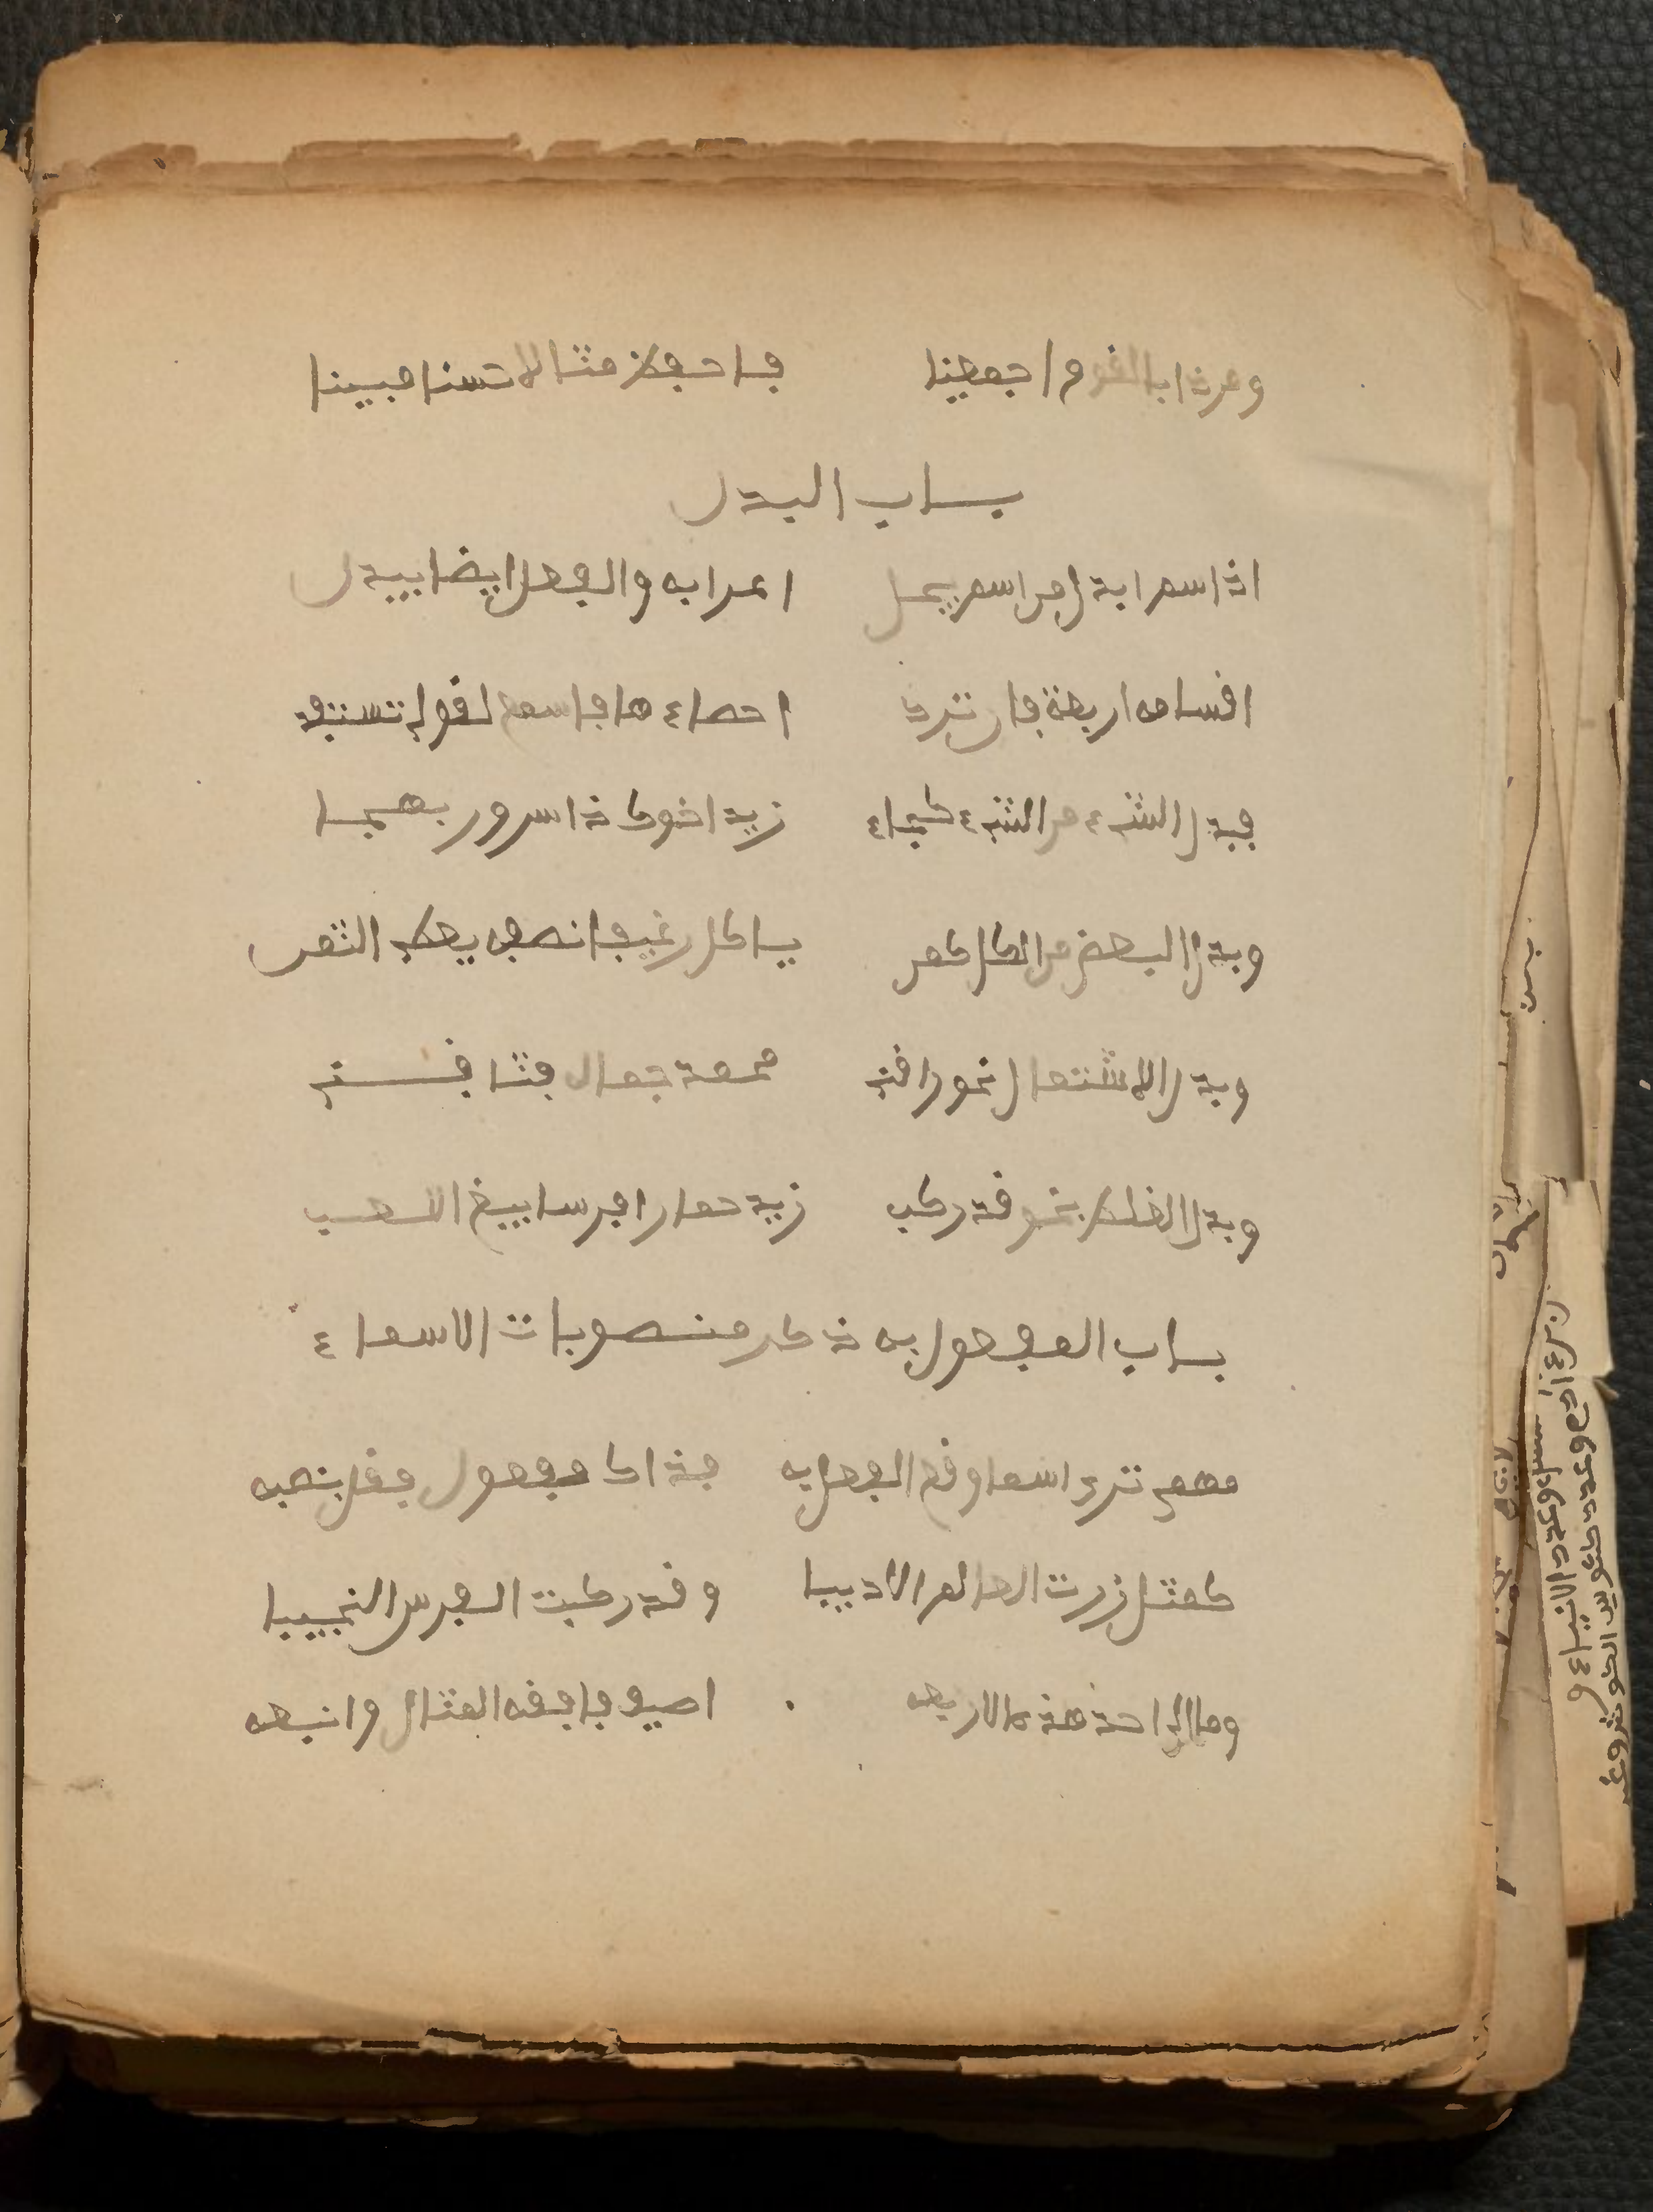 ومر ذا بالقوم اجمعينا فاحفظ مثالا حسنا مبينا
باب البدل
اذا اسم ابدل من اسم يحل اعرابه والفعل ايضا يبدل
اقسامه اربعة فان ترد احصاءها فاسمع لقولي تستفد
فبدل الشيء من الشيء كجاء زيد اخوك ذا سرور بهجا
وبدل البعض من الكل كمن ياكل رغيفا نصفه يعطي الثمن
وبدل الاشتمال نحو راقني محمد جمال فشاقني
وبدل الغلط نحو قد ركب زيد حمارا فرسا يبغ اللعب
باب المفعول به ذكر منصوبات الاسماء
مهمى ترى اسما وقع الفعل به فذاك مفعول فقل بنصبه
كمثل زرت العالم الاديبا وقد ركبت الفرس النجيبا
اضيف فافقه المثال وانبعه